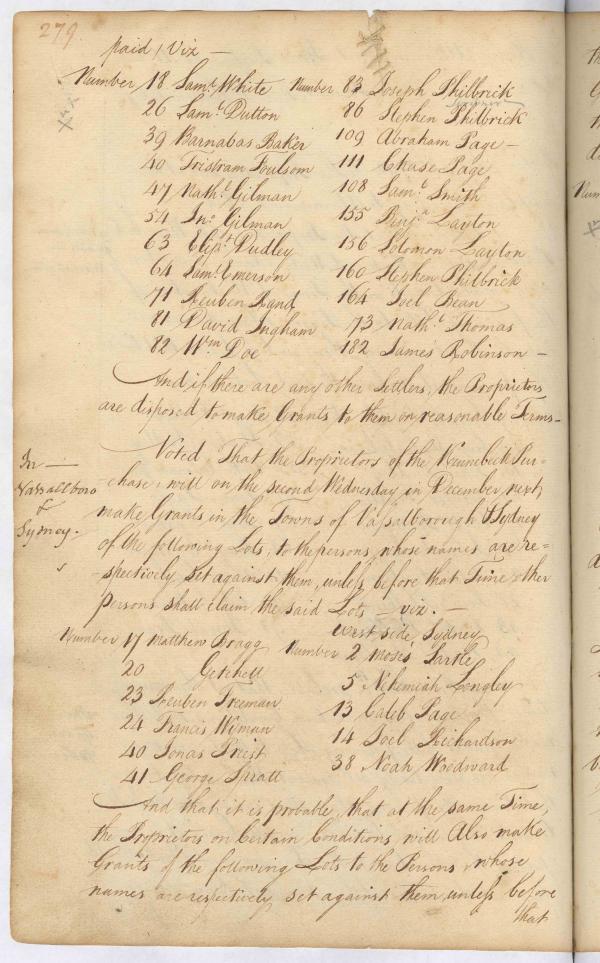 279
paid, Viz —
Number 18 Saml. White Number 83 Joseph Philbrick
26 Saml. Dutton 86 Stephen Philbrick
39 Barnabas Baker 109 Abraham Page —
40 Tristram Foulsom 111 Chase Page
47 Nathl. Gilman 108 Saml. Smith
54 Jno. Gilman 155 Benja. Layton
63 Dudley 156 Solomon Layton
64 Saml. Emerson 160 Stephen Philbrick
71 Reuben Rand 164 Joel Bean
81 David Ingham 73 Nathl. Thomas
82 Wm Doe 182 James Robinson —
And if there are any other Settlers, the Proprietors
are disposed to make Grants to them on reasonable Terms —
In —
Vassalboro
&
Sydney.
Voted That the Proprietors of the Kennebeck Pur-
-chase, will on the second Wednesday in December next,
make Grants in the Towns of Vassalborough & Sydney
of the following Lots, to the persons whose names are re-
-spectively set against them, unless before that Time other
persons shall claim the said Lots — viz. —
West side, Sydney
Number 17 Matthew Bragg Number 2 Moses Sartle
20 Getchell 5 Nehemiah Longley
23 Reuben Freeman 13 Caleb Page
24 Francis Wyman 14 Joel Richardson
40 Jonas Priest 38 Noah Woodward
41 George Pratt
And that it is probable, that at the same Time,
the Proprietors on Certain Conditions, will Also make
Grants of the following Lots to the Persons, whose
names are respectively set against them, unless before
that